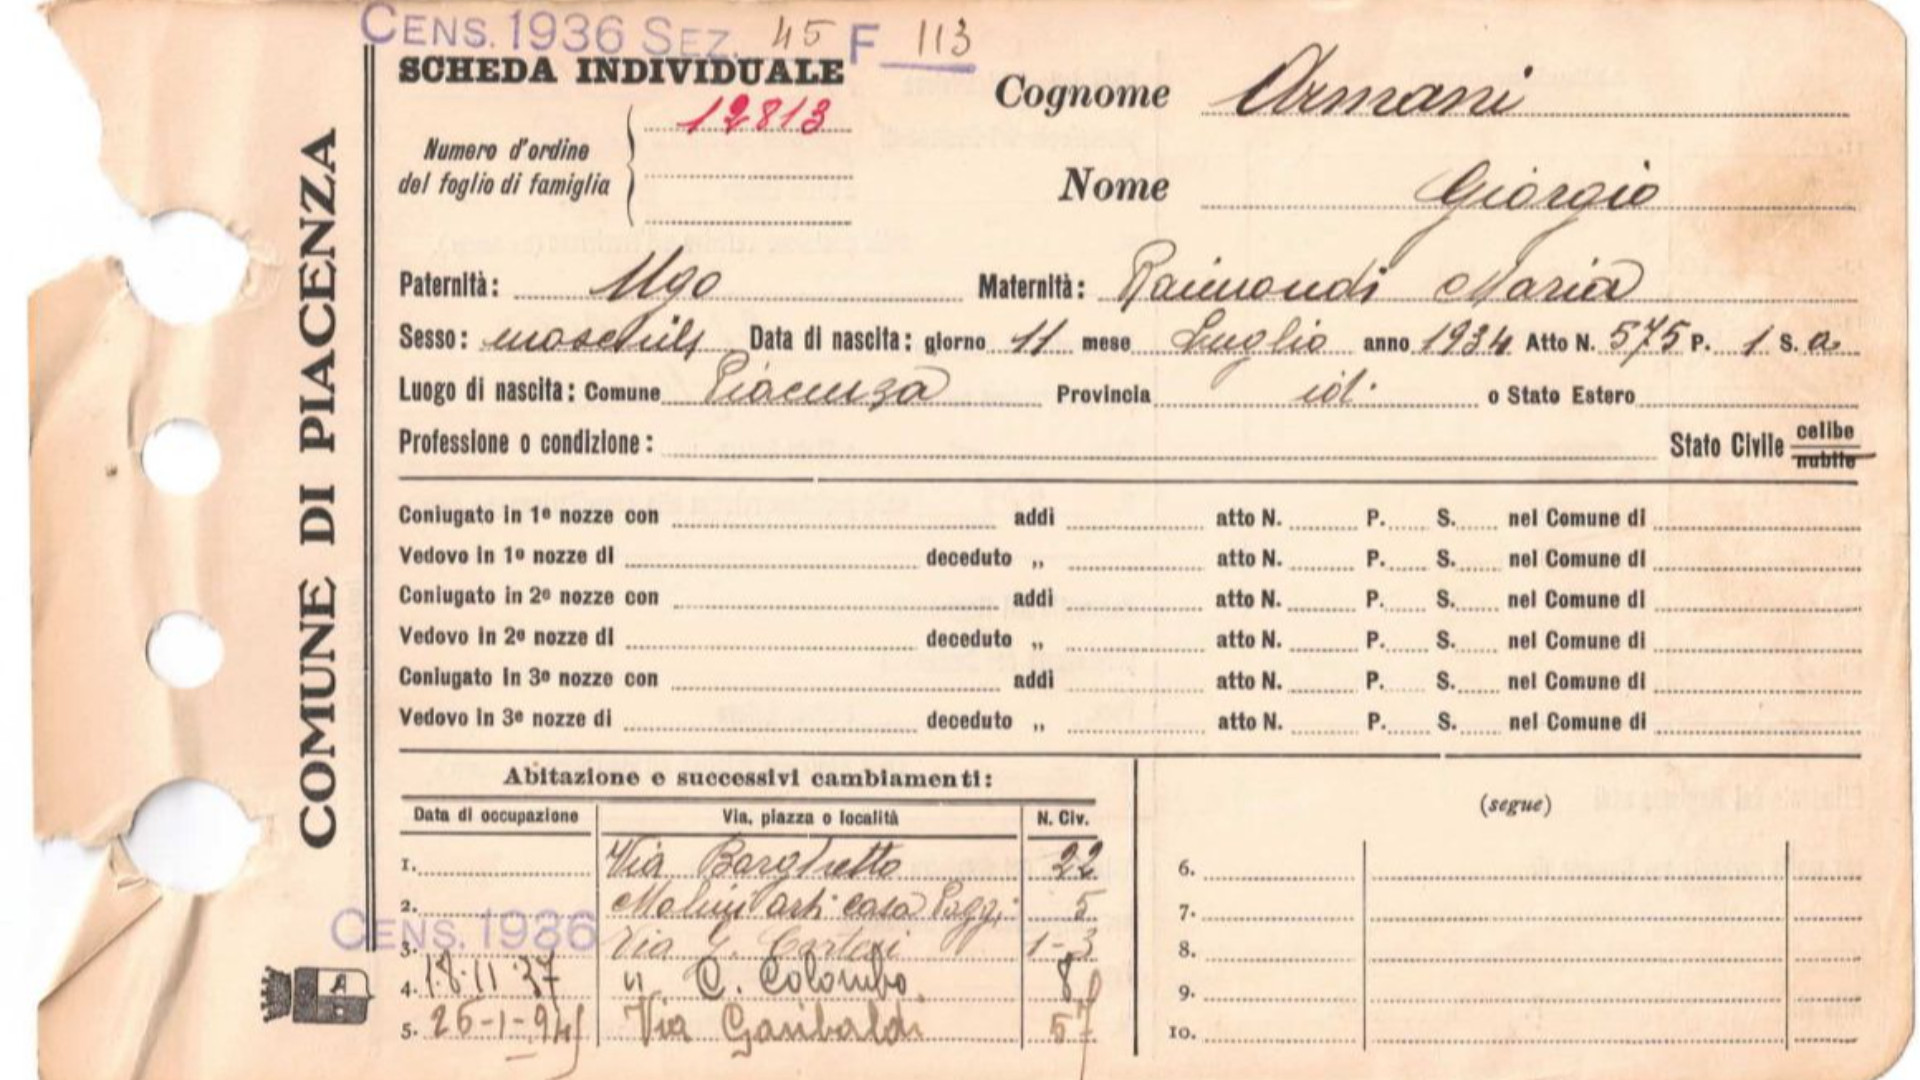 CENS. 1936 SEZ. 45 F 113
SCHEDA INDIVIDUALE
Numero d'ordine
del foglio di famiglia
12813
Cognome Armani
Nome Giorgio
COMUNE DI PIACENZA
Paternità: Ugo Maternità: Raimondi Maria
Sesso: maschile Data di nascita: giorno 11 mese Luglio anno 1934 Atto N. 575 P. 1 S. a
Luogo di nascita: Comune Piacenza Provincia id. o Stato Estero
Professione o condizione: Stato Civile celibe nubile
Coniugato in 1e nozze con addì atto N. P. S. nel Comune di
Vedovo in 1e nozze di deceduto „ atto N. P. S. nel Comune di
Coniugato in 2e nozze con addì atto N. P. S. nel Comune di
Vedovo in 2e nozze di deceduto „ atto N. P. S. nel Comune di
Coniugato in 3e nozze con addì atto N. P. S. nel Comune di
Vedovo in 3e nozze di deceduto „ atto N. P. S. nel Comune di
Abitazione e successivi cambiamenti:
Data di occupazione Via, piazza o località N. Civ.
1. Via Borghetto 22
2. casa 5
CENS. 1936
3. Via G. 1-3
4. 18-11-37 " C. Colombo 8
5. 26-1- Via Garibaldi 57
(segue)
6.
7.
8.
9.
10.